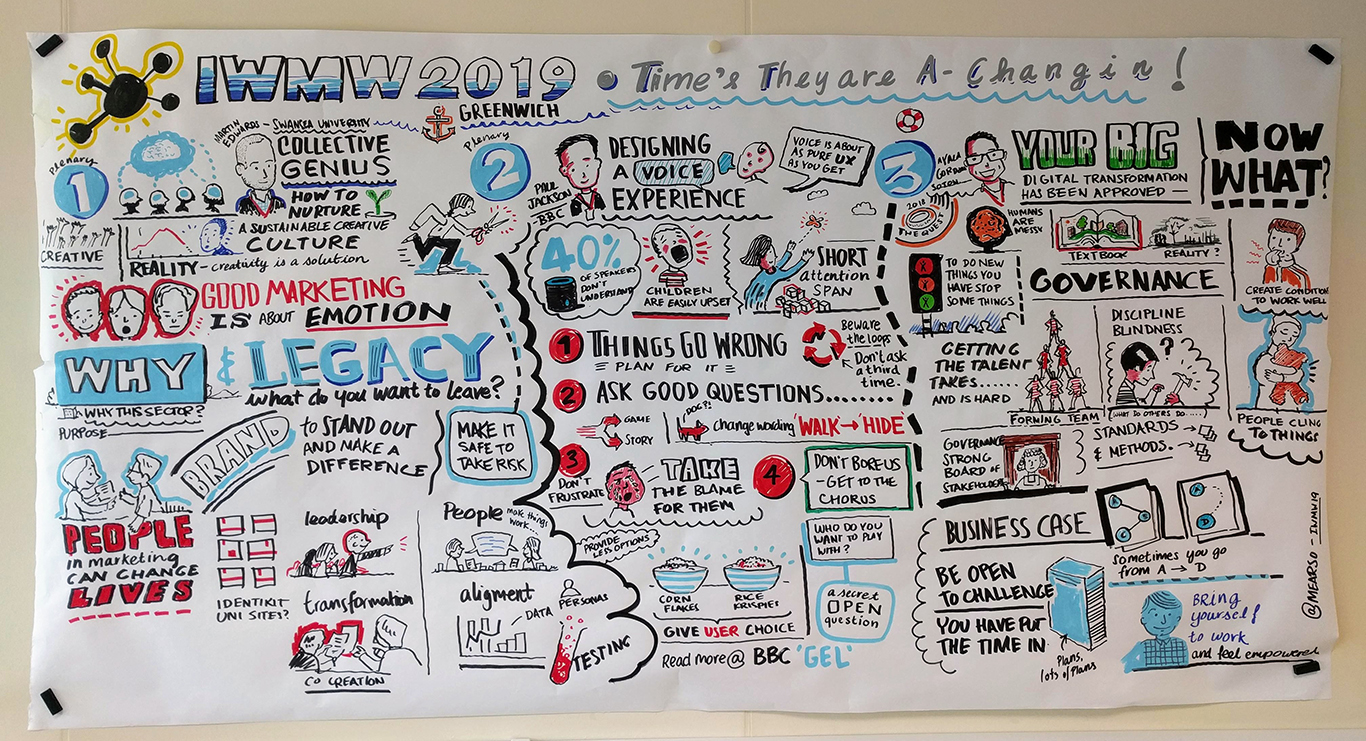 IWMW 2019
Time's They are A-Changin!
GREENWICH
Plenary
1
MARTIN
EDWARDS - SWANSEA UNIVERSITY
COLLECTIVE
GENIUS
HOW TO
NURTURE
A SUSTAINABLE CREATIVE
CULTURE
CREATIVE
REALITY - creativity is a solution
GOOD MARKETING
IS ABOUT EMOTION
WHY
& LEGACY
what do you want to leave?
WHY THIS SECTOR?
PURPOSE
BRAND
to STAND OUT
AND MAKE A
DIFFERENCE
MAKE IT
SAFE TO
TAKE RISK
PEOPLE
in marketing
CAN CHANGE
LIVES
IDENTIKIT
UNI SITES?
leadership
transformation
CO CREATION
People make things
work...
aligment
DATA
PERSONAS
TESTING
Plenary
2
PAUL
JACKSON
-BBC
DESIGNING
A VOICE
EXPERIENCE
VOICE IS ABOUT
AS PURE UX
AS YOU GET
40%
OF SPEAKERS
DON'T
UNDERSTAND
CHILDREN
ARE EASILY UPSET
SHORT
attention
SPAN
1 THINGS GO WRONG
PLAN FOR IT
Beware
the loops
Don't ask
a third
time.
2 ASK GOOD QUESTIONS........
GAME
STORY
DOG?!
change wording 'WALK→HIDE'
3
DON'T
FRUSTRATE
TAKE
THE BLAME
FOR THEM
4
DON'T BORE US
- GET TO THE
CHORUS
PROVIDE
LESS OPTIONS
CORN
FLAKES
RICE
KRISPIES
GIVE USER CHOICE
Read more @ BBC 'GEL'
WHO DO YOU
WANT TO PLAY
WITH?
a secret
OPEN
question
3
AYALA
GORDON
SOTON
YOUR BIG
DIGITAL TRANSFORMATION
HAS BEEN APPROVED —
NOW
WHAT?
2018
THE QUEST
HUMANS
ARE
MESSY
TEXTBOOK
REALITY?
TO DO NEW
THINGS YOU
HAVE STOP
SOME THINGS
X
X
X
GOVERNANCE
CREATE CONDITION
TO WORK WELL
GETTING
THE TALENT
TAKES......
AND IS HARD
FORMING TEAM
DISCIPLINE
BLINDNESS
?
WHAT DO OTHERS DO.....
PEOPLE CLING
TO THINGS
GOVERNANCE
STRONG
BOARD OF
STAKEHOLDERS
STANDARDS →
& METHODS. →
BUSINESS CASE
A
C
A
D
sometimes you go
from A → D
BE OPEN
TO CHALLENGE
YOU HAVE PUT
THE TIME IN
Plans,
lots of Plans
BRing
yourself
to work
and feel empowered
@MEARSO - IWMW19